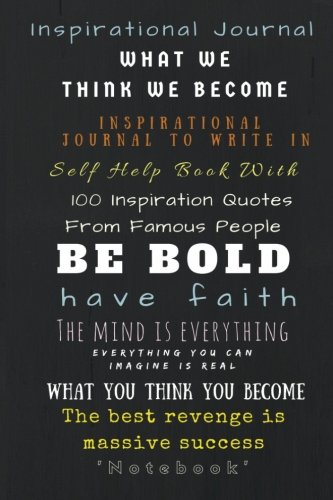 Inspirational Journal
WHAT WE
THINK WE BECOME
INSPIRATIONAL
JOURNAL TO WRITE IN
Self Help Book With
100 Inspiration Quotes
From Famous People
BE BOLD
have faith
THE MIND IS EVERYTHING
EVERYTHING YOU CAN
IMAGINE IS REAL
WHAT YOU THINK YOU BECOME
The best revenge is
massive success
"Notebook"